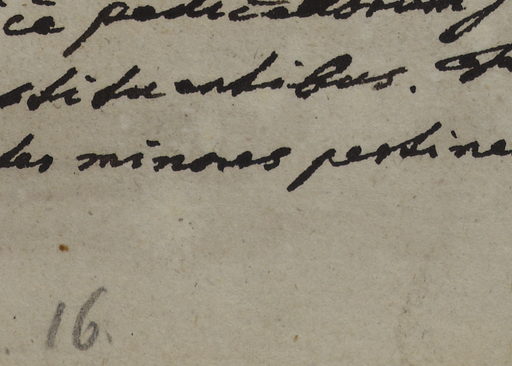 ice pedicellorum
stituentibus.
tes minores pertine
16.